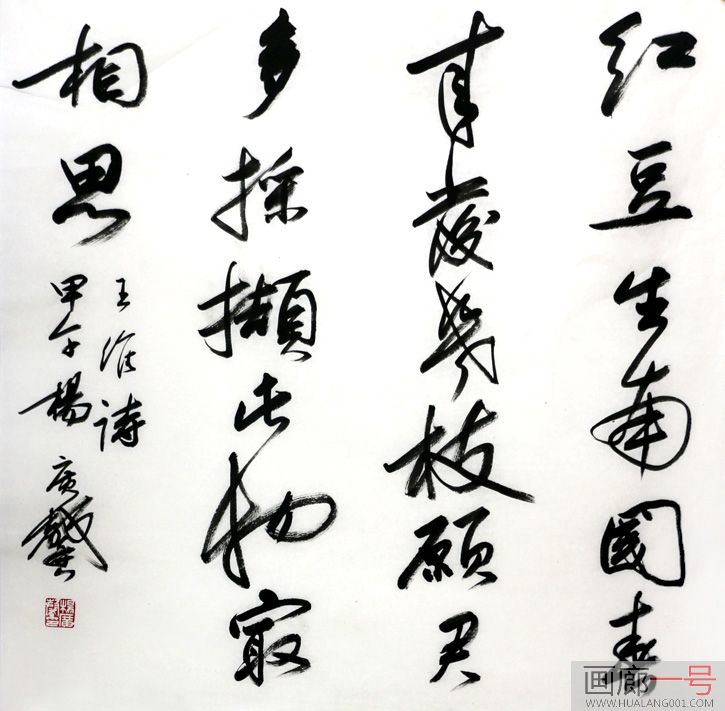 红豆生南國春
来發幾枝願君
多採擷此物最
相思
王维诗
甲午楊广
画廊一号
WWW.HUALANG001.COM